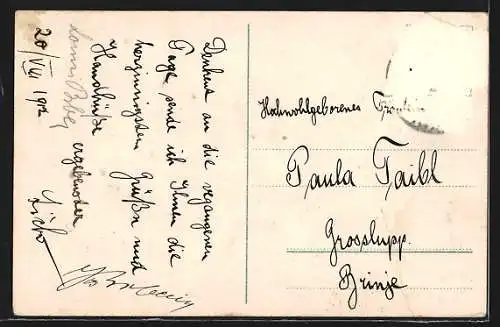 Denkend an die vergangenen
Tage sende ich Ihnen die
herzinnigsten Grüße und
Handküße
ergebenster
20/VIII 1912
Hochwohlgeborenes Fräulein
Paula Taibl
Grosslupp.
Brinje